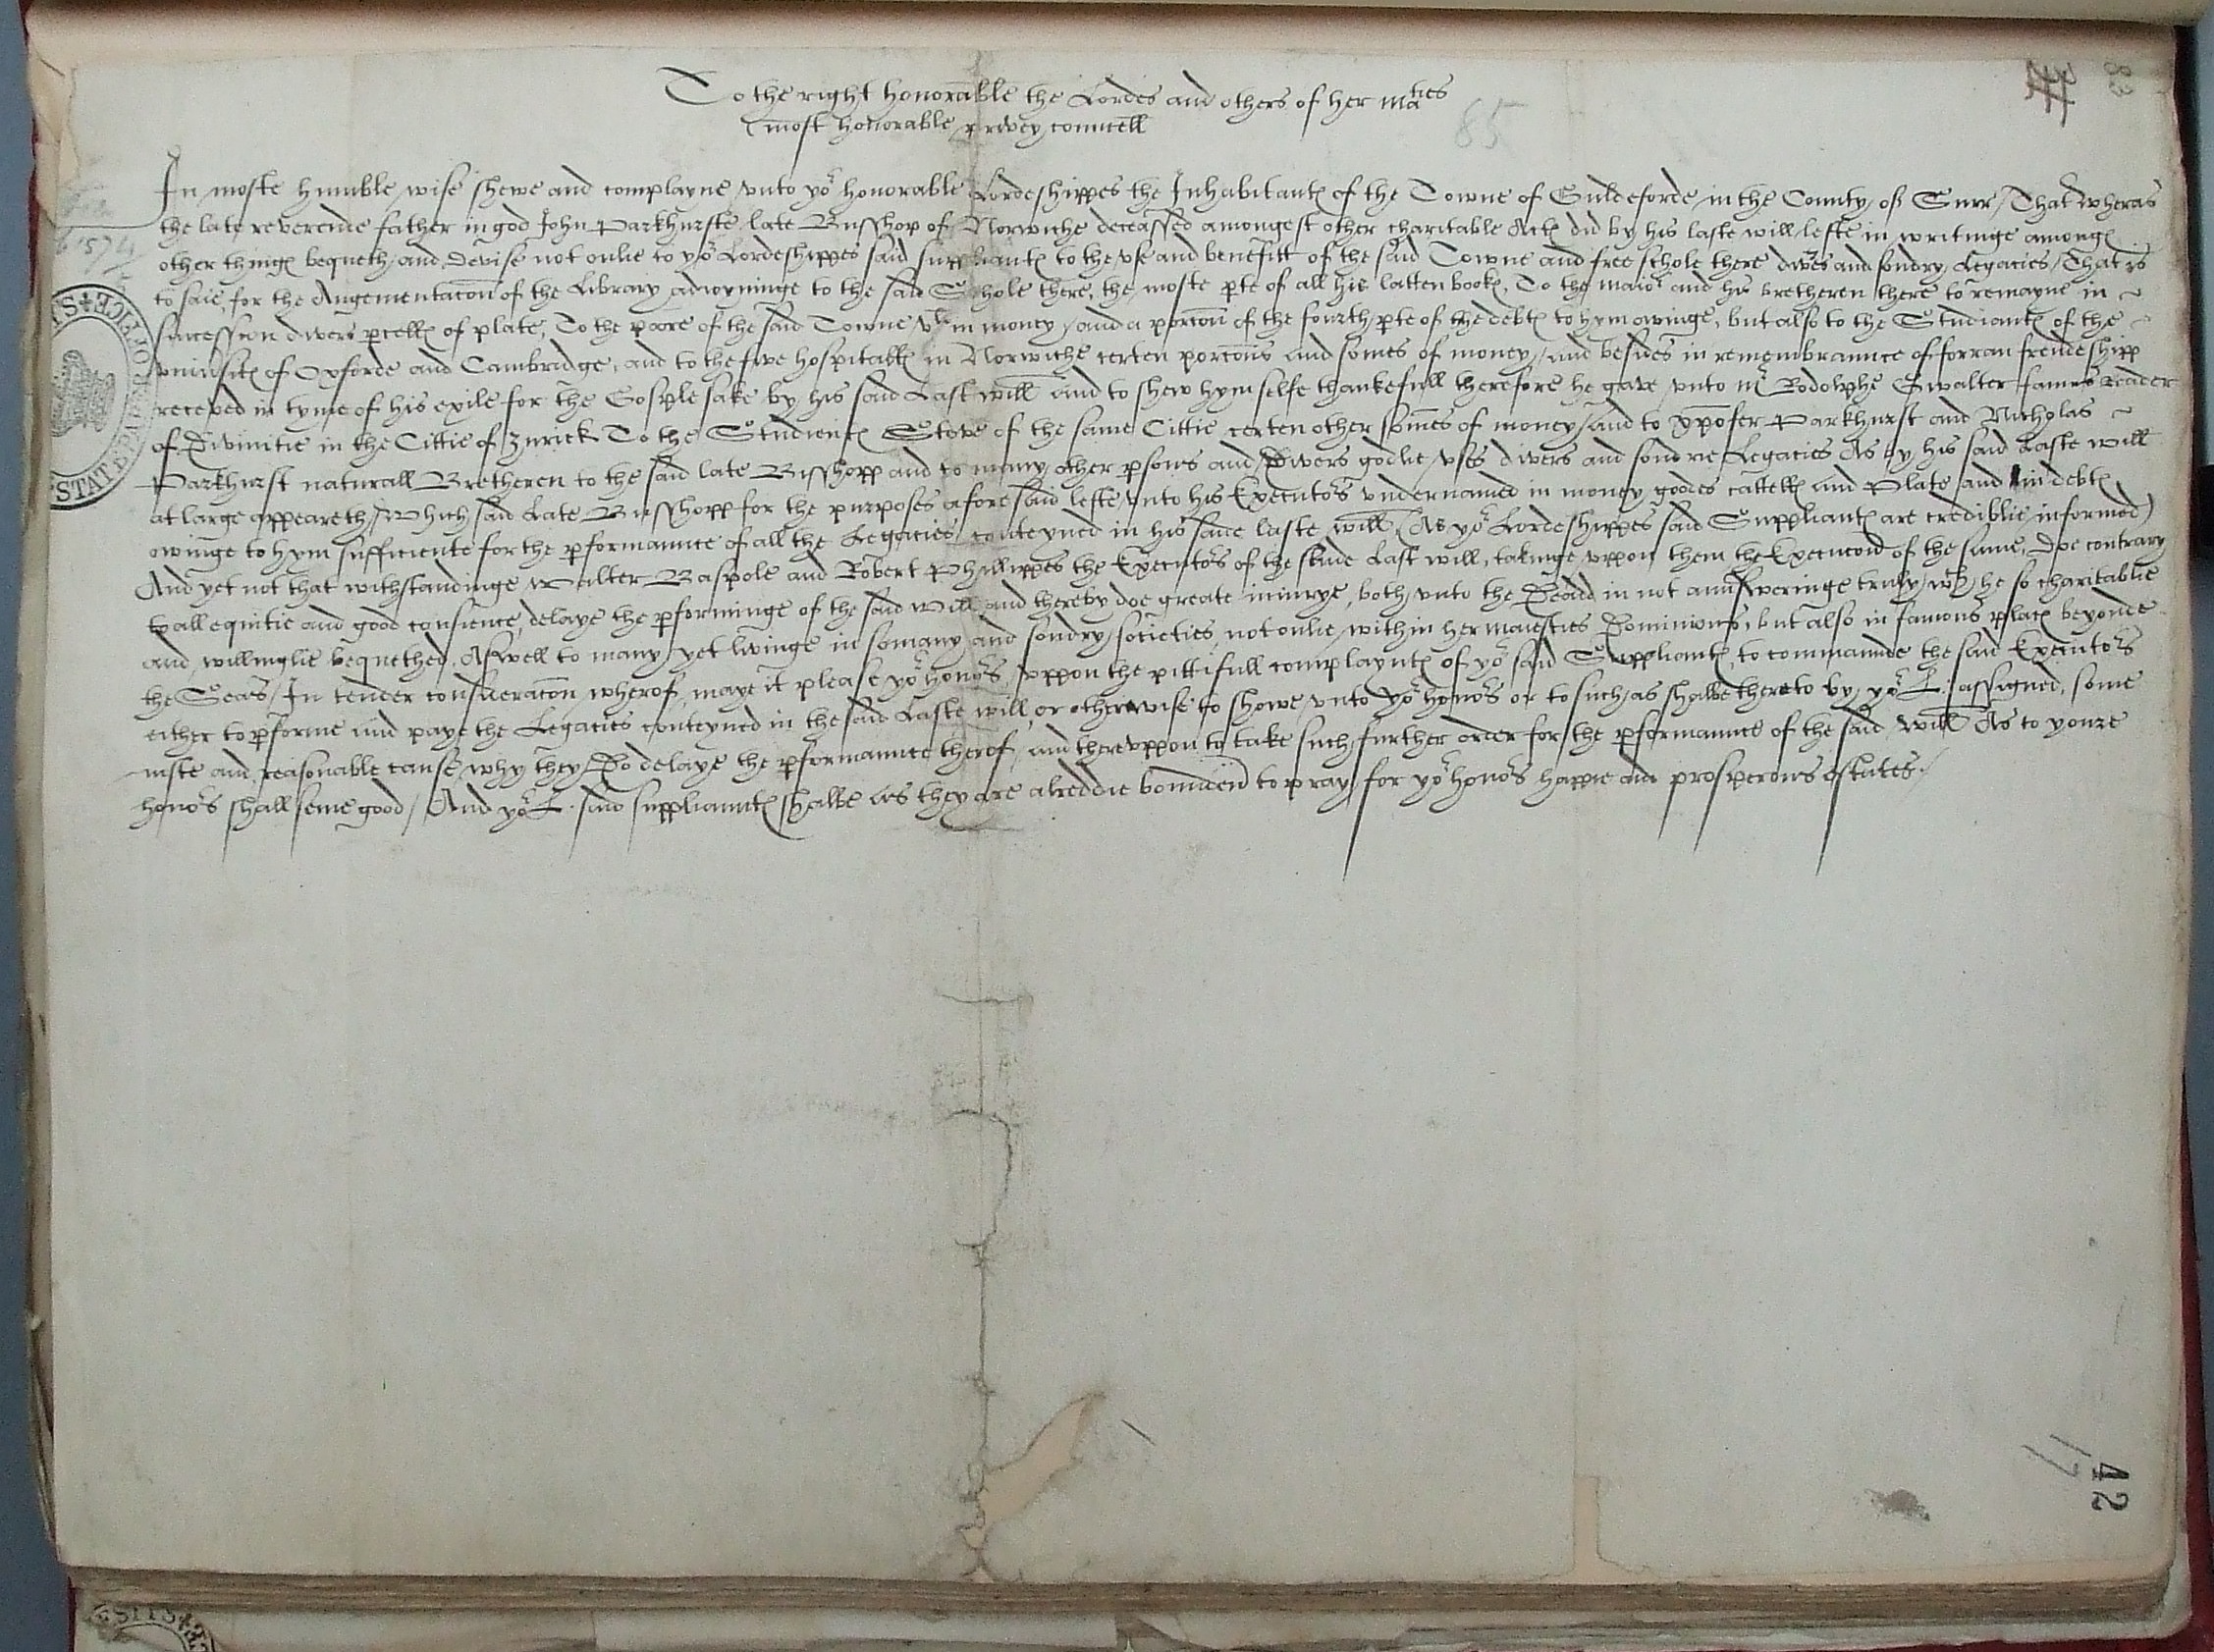 To the right honorable the Lordes and others of her maties
most honorable privey councell
83
85
In moste humble wise shewe and complayne vnto yor honorable Lordeshippes the Inhabitantes of the Towne of Guldeforde in the County of Surr / That wheras
the late reverende father in god John Parkhurste late Busshop of Norwiche deceassed amongest other charitable Actes did by his laste will lefte in writinge amonges
other thinges bequeth and devise not onlie to yor Lordeshippes said suppliantes to the vse and benefitt of the said Towne and free schole there divers and sondry Legacies / That is
to saie, for the Augementacon of the Library adioyninge to the said Schole there, the moste pte of all his latten bookes, To the maior and his bretheren there to remayne in
succession divers pcelles of plate, To the poore of the said Towne vli in money, and a porcon of the fourth pte of the debtes to hym owinge, but also to the Studiantes of the
vniusites of Oxforde and Cambridge, and to the five hospitalles in Norwiche certen porcons and somes of money, and besides in remembraunce of forran frendeshipp
receyved in tyme of his exile for the Gosple sake by his said Last will and to shew hym selfe thankefull therefore he gave vnto mr Rodolphe Gwalter famous reader
of Divinitie in the Cittie of Zurick To the Studientes Stove of the same Cittie certen other somes of money / And to xpofer Parkhurst and Nicholas
Parkhurst naturall Bretheren to the said late Bisshopp and to many other psons and divers godlie vses divers and sondrie Legacies As by his said Laste will
at large appeareth / Which said Late Busshopp for the purposes aforesaid lefte vnto his Executors vndernamed in money goodes cattelles and Plate and in debtes
owinge to hym sufficiente for the pformaunce of all the Legacies conteyned in his saide laste will (As yor Lordeshippes said Suppliantes are crediblie informed)
And yet not that withstandinge Walter Baspole and Robert Phillippes the Executors of the saide Last will, takinge vppon them the Execucon of the same, doe contrary
to all equitie and good consience, delaye the pforminge of the said will and thereby doe greate iniurye, both vnto the Deade in not aunsweringe truly wch he so charitablie
and willinglie bequethed, Aswell to many yet livinge in somany and sondry societies, not onlie within her maiesties Dominions, but also in famous places beyonde
the Seas / In tender consideracon wherof, maye it please yor honors, vppon the pittifull complayntes of yor said Suppliantes, to commaunde the said Executors
either to pforme and paye the Legacies conteyned in the said Laste will, or otherwise to showe vnto yor honors or to such as shalbe thereto by yor L. assigned, some
iuste and reasonable cause, why they Do delaye the pformaunce therof, and therevppon to take such further order for the pformaunce of the said will As to youre
honors shall seme good / And yor L. said suppliauntes shalbe as they are alreddie bounden to pray for yor honors happie and prosperous estates./
STATE PAPER OFFICE
17
42